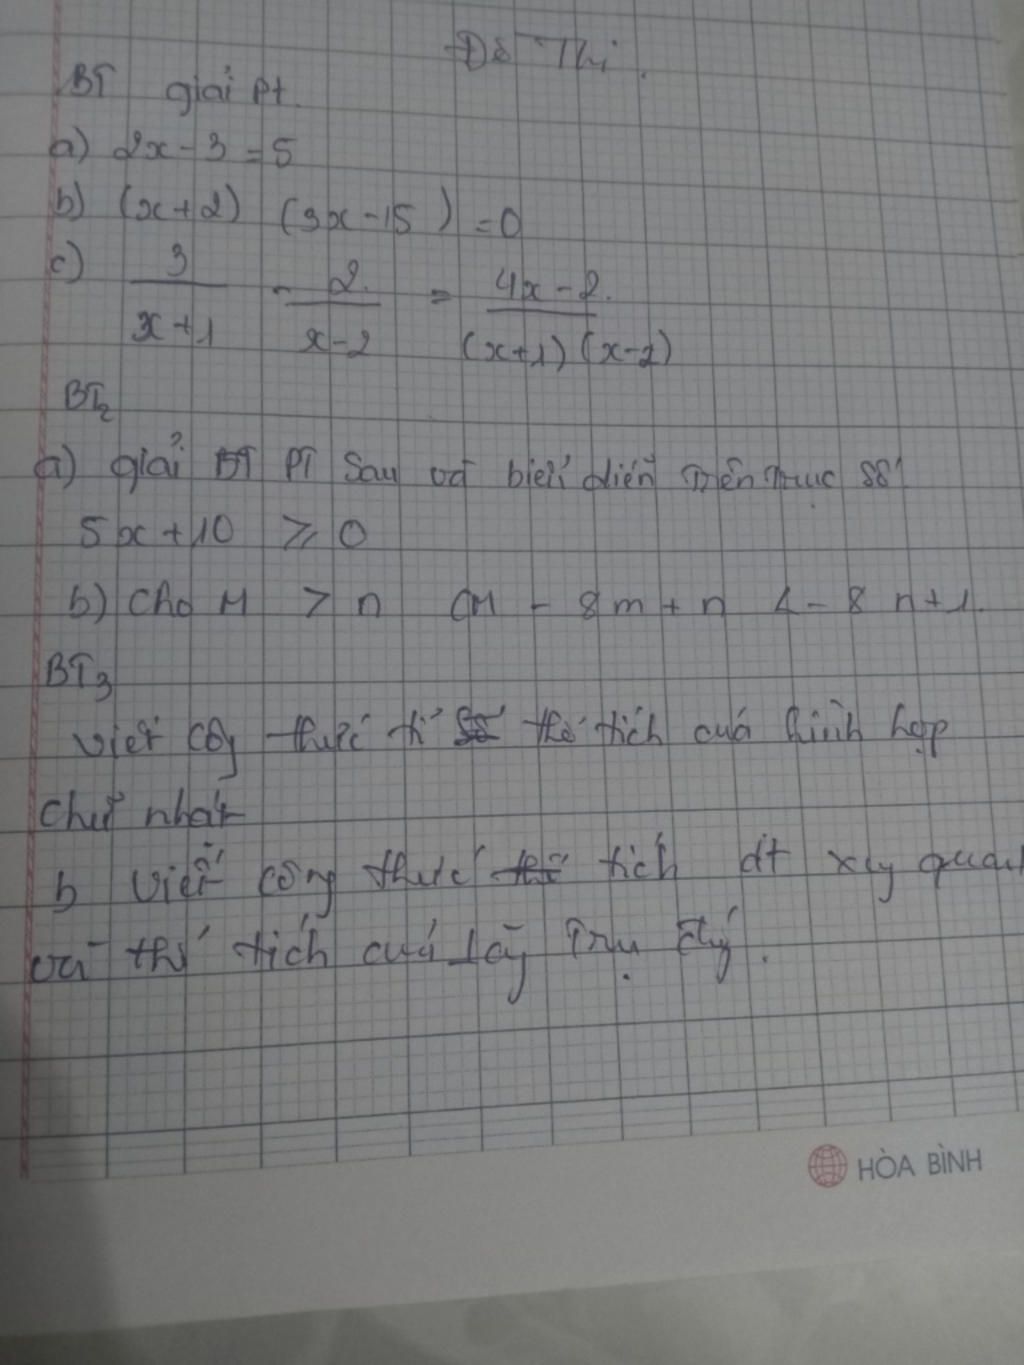 Đề Thi.
BT giải pt.
a) 2x - 3 = 5
b) (x+2) (3x-15) = 0
c) 3/(x+1) - 2/(x-2) = (4x-2)/((x+1)(x-2))
BT2
a) giải BT PT sau và biểu diễn trên trục số
5x+10 ≥ 0
b) Cho M > n CM - 8m + n < - 8 n+1.
BT3
viết thức thể tích của hình hộp
chữ nhật
b viết công thức tích dt x quan
và thể tích của trụ
HÒA BÌNH